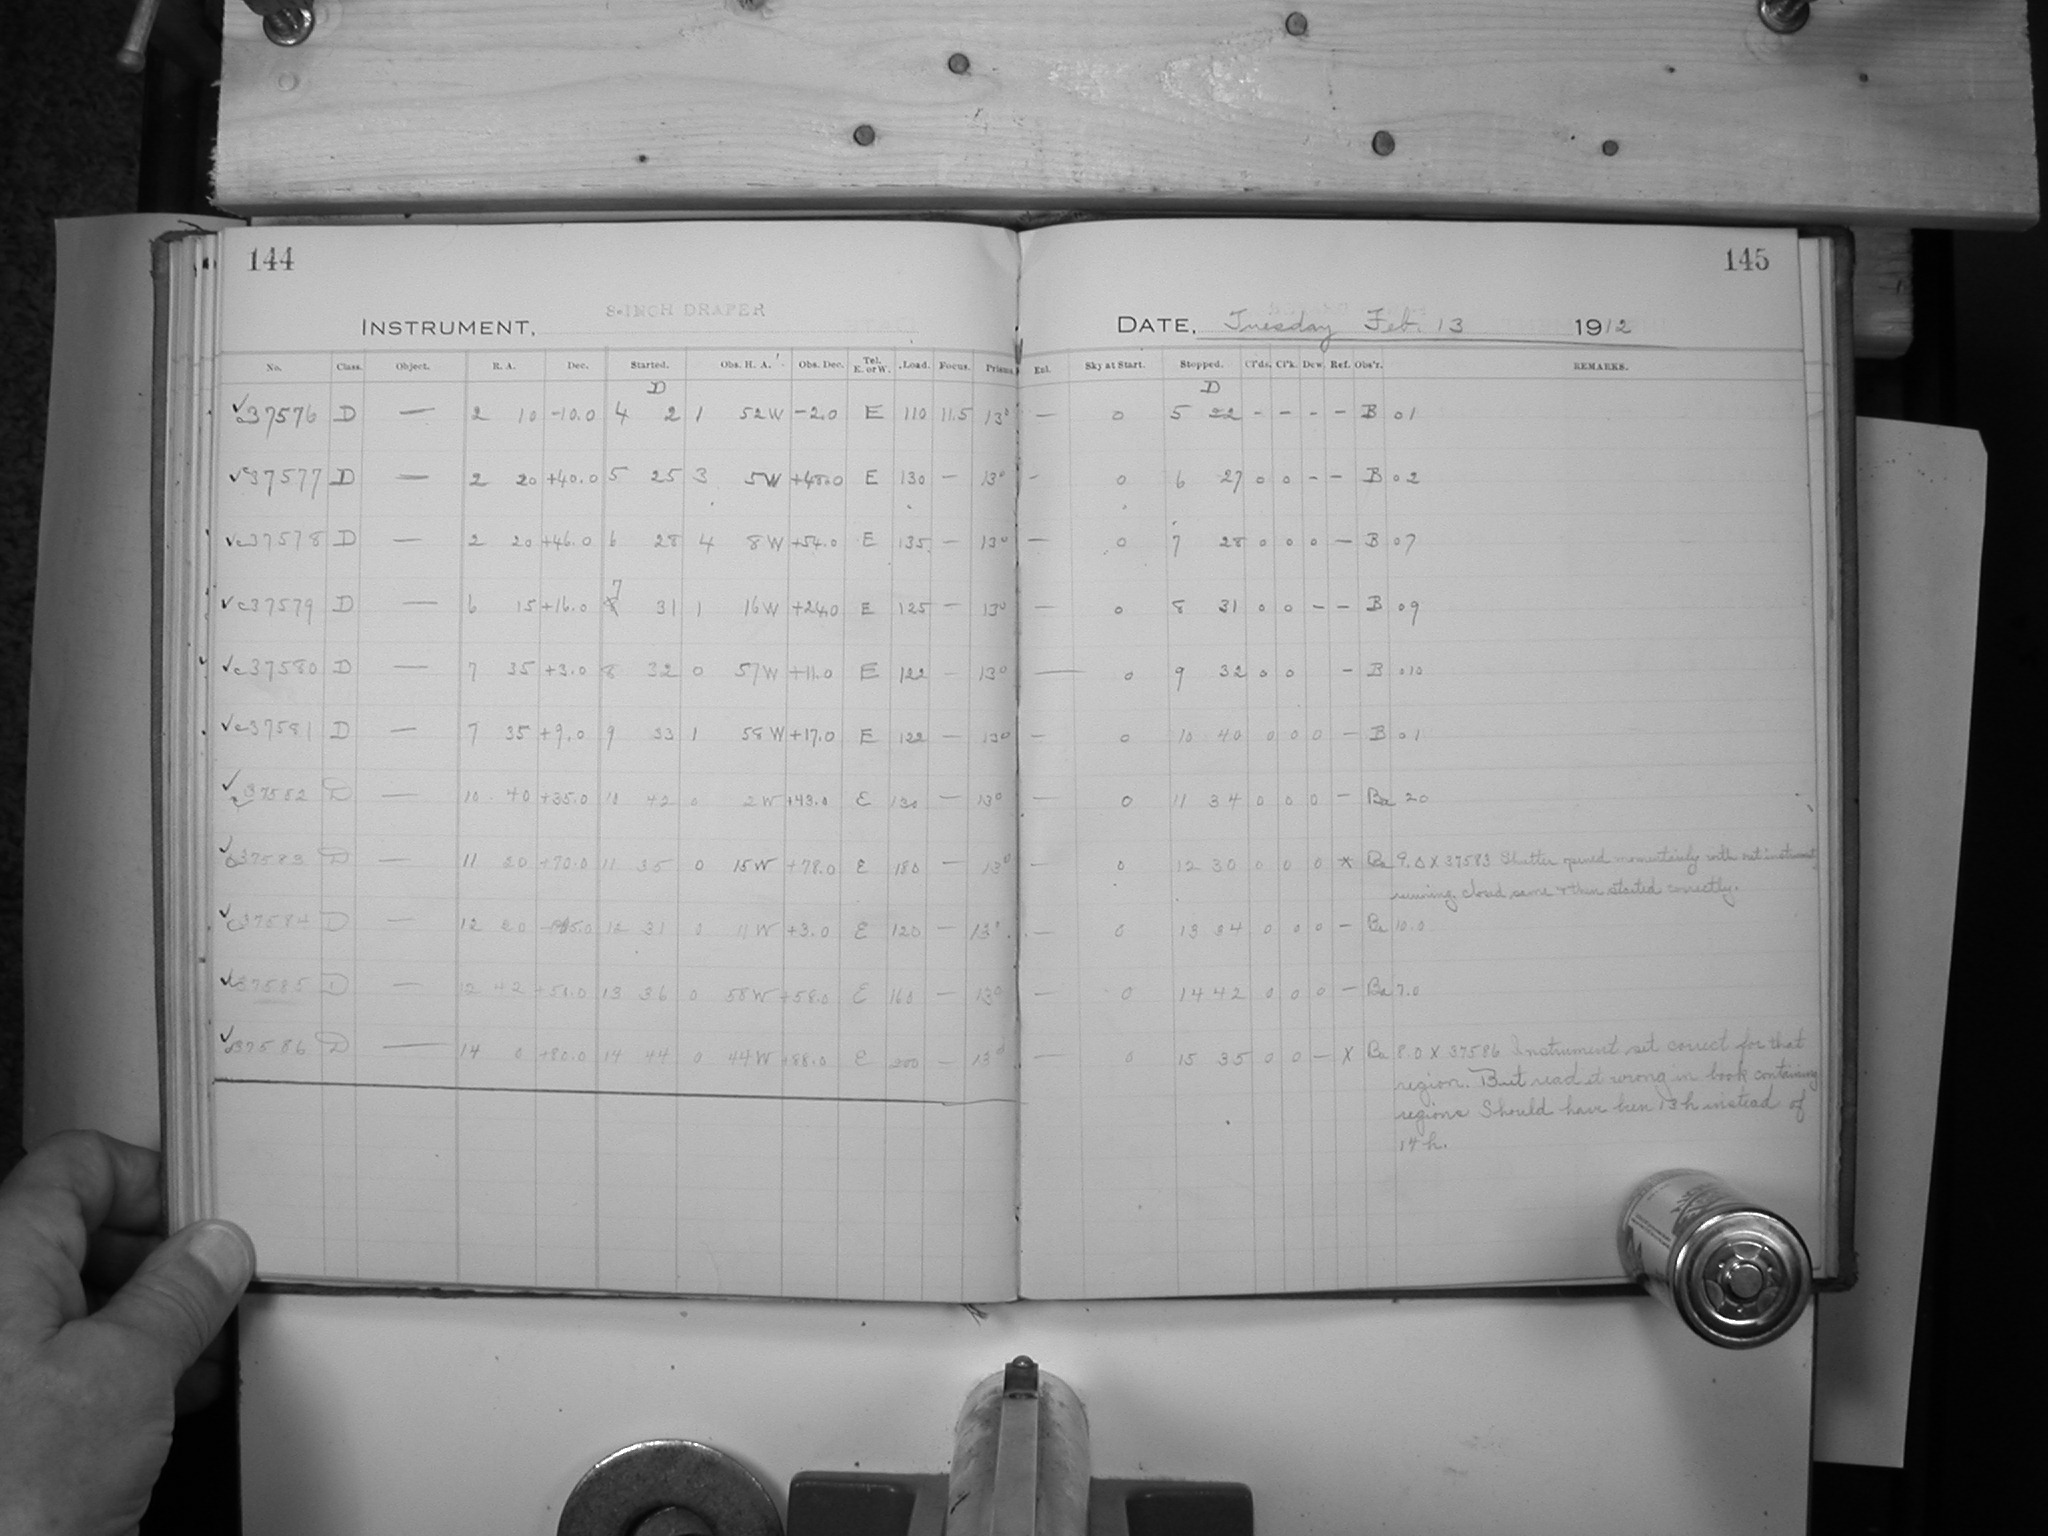 144
145
INSTRUMENT, 8-INCH DRAPER
DATE, Tuesday Feb. 13 1912
No. Class. Object. R. A. Dec. Started. Obs. H. A. Obs. Dec. Tel. E. or W. Load. Focus. Prism. Enl. Sky at Start. Stopped. Cl'ds. Cl'k. Dew. Ref. Obs'r. REMARKS.
D D
✓c37576 D — 2 10 -10.0 4 2 1 52W -2.0 E 110 11.5 13° — 0 5 22 - - - - B 01
✓c37577 D — 2 20 +40.0 5 25 3 5W +48.0 E 130 — 13° - 0 6 27 0 0 - - B 02
✓c37578 D — 2 20 +46.0 6 28 4 8W +54.0 E 135 — 13° — 0 7 28 0 0 0 — B 07
✓c37579 D — 6 15 +16.0 7 31 1 16W +24.0 E 125 — 13° — 0 8 31 0 0 - - B 09
✓c37580 D — 7 35 +3.0 8 32 0 57W +11.0 E 122 — 13° — 0 9 32 0 0 - B 010
✓c37581 D — 7 35 +9.0 9 33 1 58W +17.0 E 122 — 13° — 0 10 40 0 0 0 — B 01
✓c37582 D — 10 40 +35.0 10 42 0 2W +43.0 E 130 — 13° — 0 11 34 0 0 0 — Ba 20
✓c37583 D — 11 20 +70.0 11 35 0 15W +78.0 E 180 — 13° — 0 12 30 0 0 0 X Ba 9.0 X 37583 Shutter opened momentarily with out instrument
running, closed same & then started correctly.
✓c37584 D — 12 20 -5.0 12 31 0 11W +3.0 E 120 — 13° — 0 13 34 0 0 0 — Ba 10.0
✓c37585 D — 12 42 +50.0 13 36 0 58W +58.0 E 160 — 13° — 0 14 42 0 0 0 — Ba 7.0
✓c37586 D — 14 0 +80.0 14 44 0 44W +88.0 E 200 — 13° — 0 15 35 0 0 — X Ba 8.0 X 37586 Instrument set correct for that
region. But read it wrong in book containing
regions Should have been 13h instead of
14h.